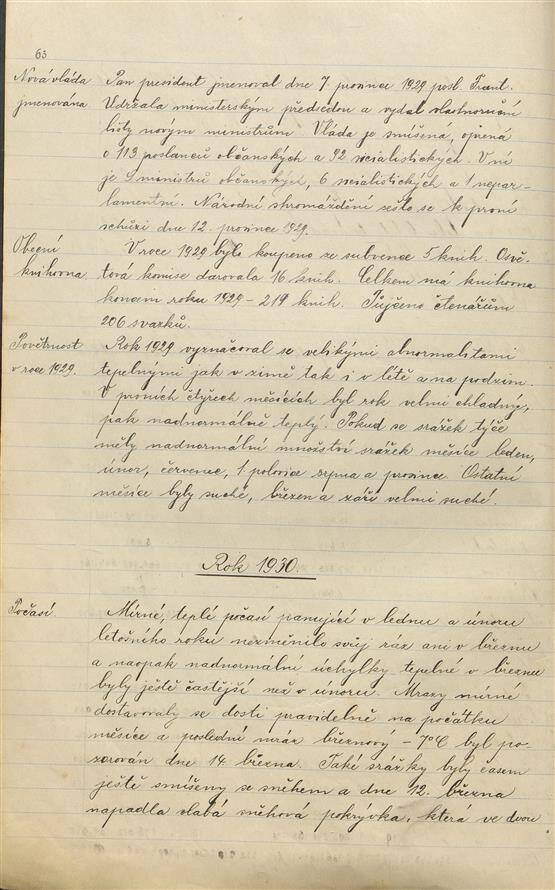 63
Nová vláda
jmenována
Pan president jmenoval dne 7 prosince 1929 posl. Frant.
Udržala ministerským předsedou a vydal vlastnoruční
listy novým ministrům Vláda je smíšená, opřená
o 113 poslanců občanských a 92 socialistických. V ní
je 9 ministrů občanských, 6 socialistických a 1 nepar-
lamentní. Národní shromáždění sešlo se k první
schůzi dne 12. prosince 1929.
Obecní
knihovna
V roce 1929 bylo koupeno ze subvence 5 knih. Osvě-
tová komise darovala 16 knih. Celkem má knihovna
koncem roku 1929 - 219 knih. Půjčeno čtenářům
206 svazků.
Povětrnost
v roce 1929.
Rok 1929 vyznačoval se velikými abnormalitami
tepelnými jak v zimě tak i v létě a na podzim.
V prvních čtyřech měsících byl rok velmi chladný,
pak nadnormálně teplý. Pokud se srážek týče
měly nadnormální množství srážek měsíce leden,
únor, červenec, 1. polovice srpna a prosinec. Ostatní
měsíce byly suché, březen a září velmi suché.
Rok 1930.
Počasí
Mírné, teplé počasí panující v lednu a únoru
letošního roku nezměnilo svůj ráz ani v březnu
a naopak nadnormální úchylky tepelné v březnu
byly ještě častější než v únoru. Mrazy mírné
dostavovaly se dosti pravidelně na počátku
měsíce a poslední mráz březnový - 7°C byl po-
zorován dne 14. března. Také srážky byly časem
ještě smíšeny se sněhem a dne 12. března
napadla slabá sněhová pokrývka, která ve dvou